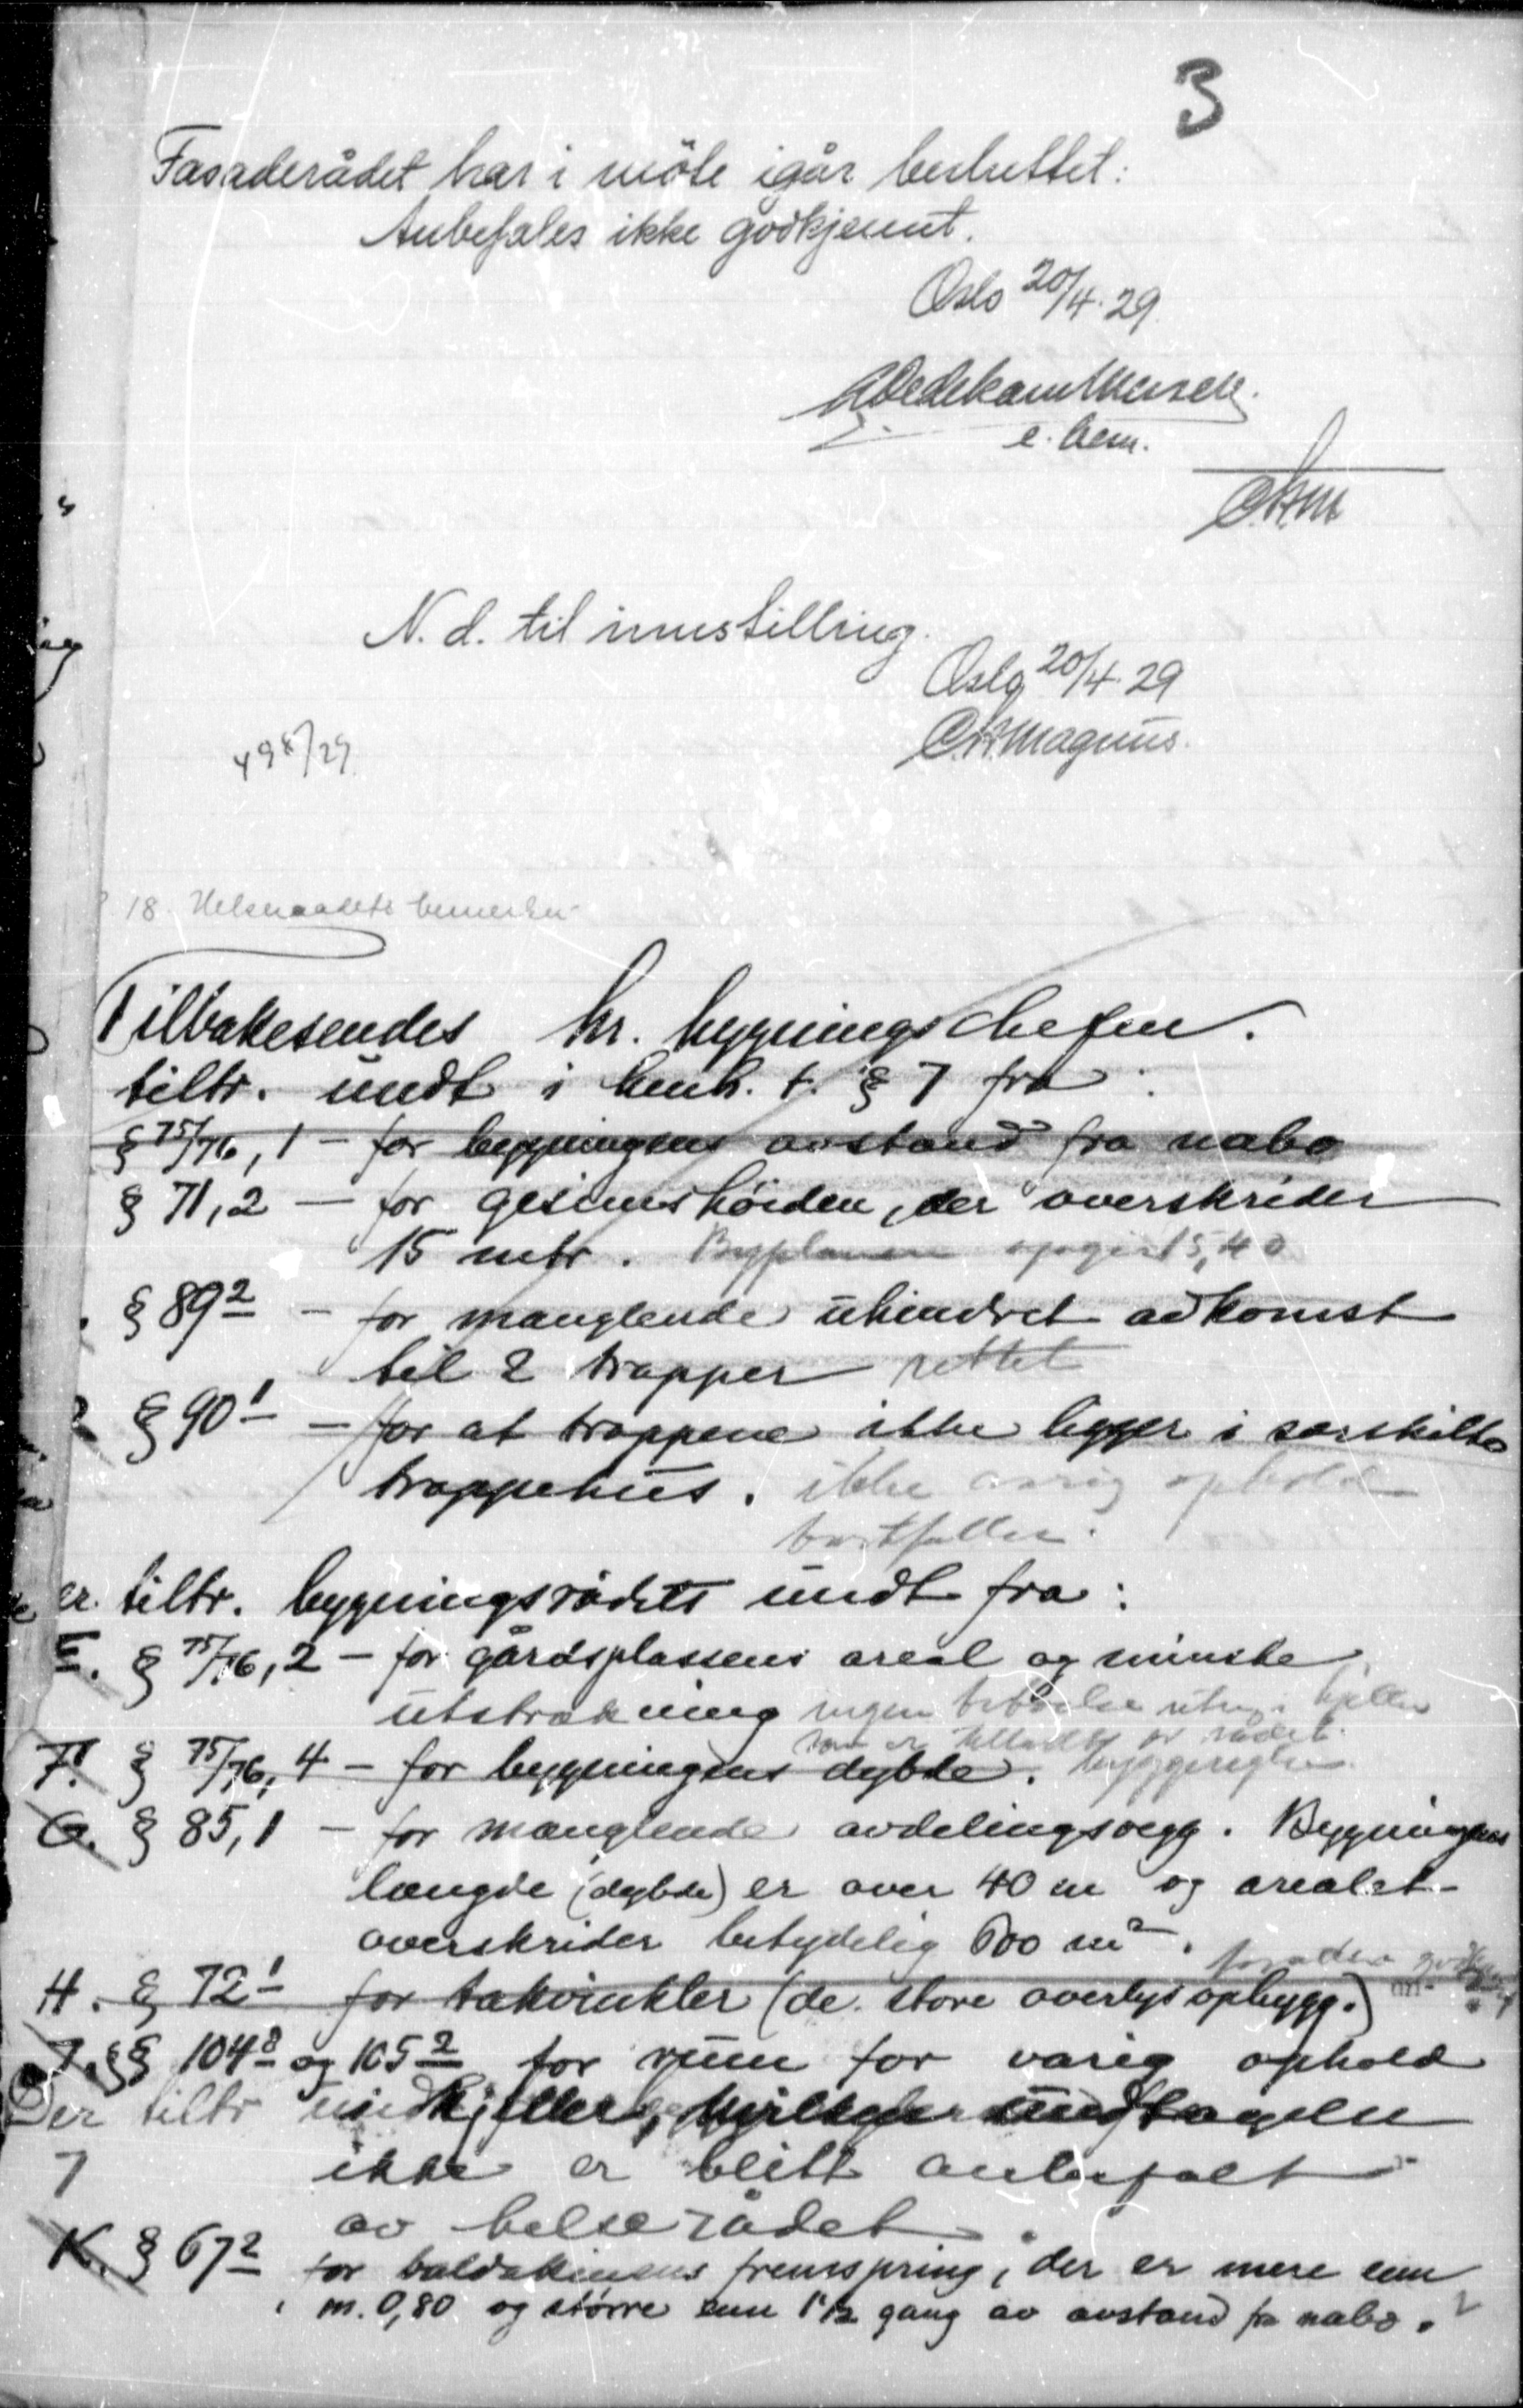 3
Fasaderådet har i möte igår besluttet:
Anbefales ikke godkjennt.
Oslo 20/4.29
e. bem.
N. d. til innstilling.
Oslo 20/4.29
C.H. Magnus.
498/29
18. Helseraadets bemerkn
Tilbakesendes hr. bygningschefen.
tiltr. undt i henh. t. § 7 fra:
§ 75/76, 1 - for bygningens avstand fra nabo
§ 71,2 - for gesimshöiden, der overskrider
15 mtr. Byplanen opgir 15,40
§ 89² - for manglende uhindret adkomst
til 2 trapper rettet
§ 90¹ - for at trappene ikke ligger i særskilte
trappehus. ikke varig ophold
bortfaller.
er tiltr. bygningsrådets undt fra:
E. § 75/76, 2 - for gårdsplassens areal og minste
utstrækning ingen utn. i kjeller
som er tilladt av rådet.
F. § 75/76, 4 - for bygningens dybde.
G. § 85,1 - for manglende avdelingsvegg. Bygningens
længde (dybde) er over 40 m og arealet
overskrider betydelig 600 m².
H. § 72¹ for takvinkler (de store overlysopbygg.)
§§ 104⁸ og 105² for rum for varig ophold
Der tiltr undt kjeller, hvilken undtagelse
7 ikke er blitt anbefalt
av helserådet.
K. § 67² for baldakinens fremspring, der er mere enn
m. 0,80 og större enn 1½ gang av avstand fra nabo.